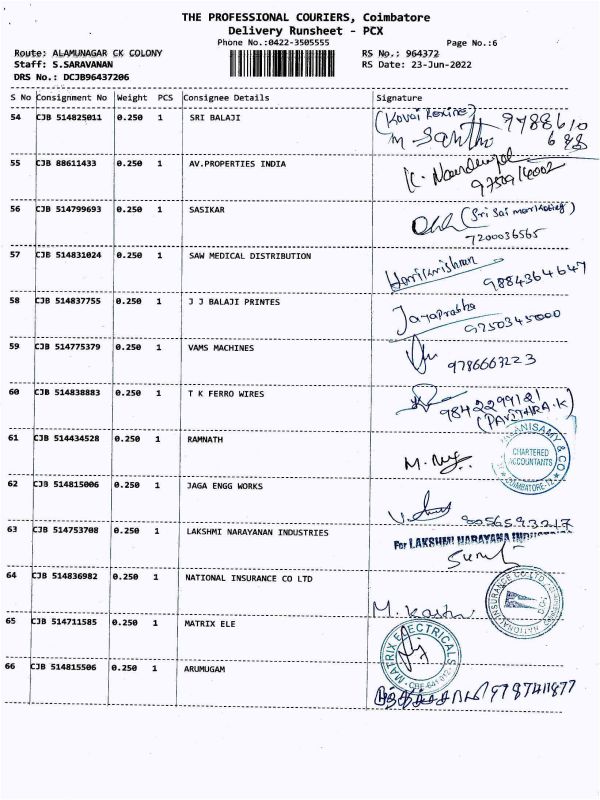 THE PROFESSIONAL COURIERS, Coimbatore
Delivery Runsheet - PCX
Phone No.:0422-3505555
Page No.:6
Route: ALAMUNAGAR CK COLONY
RS No.: 964372
Staff: S.SARAVANAN
RS Date: 23-Jun-2022
DRS No.: DCJB96437206
S No Consignment No Weight PCS Consignee Details Signature
54 CJB 514825011 0.250 1 SRI BALAJI
(Kovai Rexine) 9788610
688
55 CJB 88611433 0.250 1 AV.PROPERTIES INDIA
56 CJB 514799693 0.250 1 SASIKAR
(Sri Sai marketing)
7200036565
57 CJB 514831024 0.250 1 SAW MEDICAL DISTRIBUTION
Harikrishnan
9884364647
58 CJB 514837755 0.250 1 J J BALAJI PRINTES
Jayaprabha
9750345000
59 CJB 514775379 0.250 1 VAMS MACHINES
9786663223
60 CJB 514838883 0.250 1 T K FERRO WIRES
9842299121
(PAVITHRA.K)
61 CJB 514434528 0.250 1 RAMNATH
CHARTERED
ACCOUNTANTS
62 CJB 514815006 0.250 1 JAGA ENGG WORKS
9056593217
63 CJB 514753708 0.250 1 LAKSHMI NARAYANAN INDUSTRIES
For LAKSHMI NARAYANA INDUSTRIES
64 CJB 514836982 0.250 1 NATIONAL INSURANCE CO LTD
65 CJB 514711585 0.250 1 MATRIX ELE
MATRIX ELECTRICALS
66 CJB 514815506 0.250 1 ARUMUGAM
9787411877